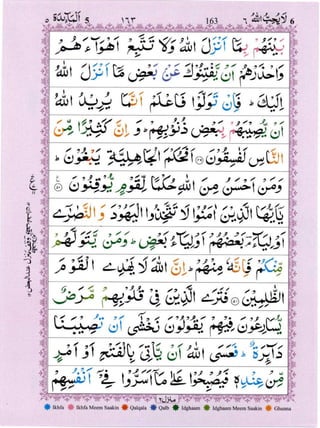 ٦ لَا يُحِبُّ اللّٰهُ ٦ 163 ١٦٣ اَلْمَآئِدَة ٥ ٥
بَيْنَهُمْ بِمَآ اَنْزَلَ اللّٰهُ وَلَا تَتَّبِعْ اَهْوَآءَهُمْ
وَاحْذَرْهُمْ اَنْ يَّفْتِنُوْكَ عَنْۢ بَعْضِ مَآ اَنْزَلَ اللّٰهُ
اِلَيْكَ ؕ فَاِنْ تَوَلَّوْا فَاعْلَمْ اَنَّمَا يُرِيْدُ اللّٰهُ
اَنْ يُّصِيْبَهُمْ بِبَعْضِ ذُنُوْبِهِمْ ؕ وَاِنَّ كَثِيْرًا مِّنَ
النَّاسِ لَفٰسِقُوْنَ ۝ اَفَحُكْمَ الْجَاهِلِيَّةِ يَبْغُوْنَ ؕ
وَمَنْ اَحْسَنُ مِنَ اللّٰهِ حُكْمًا لِّقَوْمٍ يُّوْقِنُوْنَ ۝
يٰۤاَيُّهَا الَّذِيْنَ اٰمَنُوْا لَا تَتَّخِذُوا الْيَهُوْدَ وَالنَّصٰرٰۤى
اَوْلِيَآءَ ؔ بَعْضُهُمْ اَوْلِيَآءُ بَعْضٍ ؕ وَمَنْ يَّتَوَلَّهُمْ
مِّنْكُمْ فَاِنَّهٗ مِنْهُمْ ؕ اِنَّ اللّٰهَ لَا يَهْدِى الْقَوْمَ
الظّٰلِمِيْنَ ۝ فَتَرَى الَّذِيْنَ فِىْ قُلُوْبِهِمْ مَّرَضٌ
يُّسَارِعُوْنَ فِيْهِمْ يَقُوْلُوْنَ نَخْشٰٓى اَنْ تُصِيْبَنَا
دَآئِرَةٌ ؕ فَعَسَى اللّٰهُ اَنْ يَّاْتِىَ بِالْفَتْحِ اَوْ اَمْرٍ
مِّنْ عِنْدِهٖ فَيُصْبِحُوْا عَلٰى مَآ اَسَرُّوْا فِىْۤ اَنْفُسِهِمْ
منزل ٢
Ikhfa Ikhfa Meem Saakin Qalqala Qalb Idghaam Idghaam Meem Saakin Ghunna